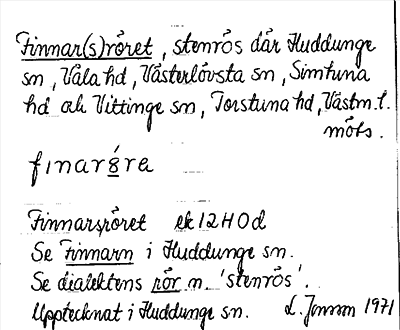 Finnar(s)röret, stenrös där Huddunge
sn, Våla hd, Västerlövsta sn, Simtuna
hd och Vittinge sn, Torstuna hd, Västm. l.
möts.
fınar8́re
Finnarsröret ek 12H0d
Se Finnarn i Huddunge sn.
Se dialektens rör n. 'stenrös'.
Upptecknat i Huddunge sn. L. Jonson 1971